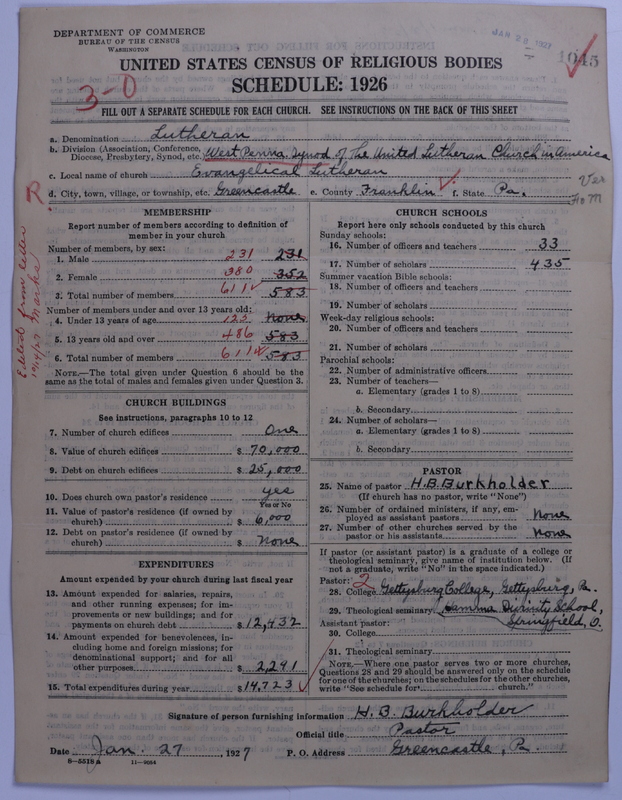 DEPARTMENT OF COMMERCE
BUREAU OF THE CENSUS
WASHINGTON
JAN 28 1927
1045
UNITED STATES CENSUS OF RELIGIOUS BODIES
SCHEDULE: 1926
3-0
FILL OUT A SEPARATE SCHEDULE FOR EACH CHURCH. SEE INSTRUCTIONS ON THE BACK OF THIS SHEET
a. Denomination Lutheran
b. Division (Association, Conference, Diocese, Presbytery, Synod, etc.) West Penna. Synod of The United Lutheran Church in America
c. Local name of church Evangelical Lutheran
d. City, town, village, or township, etc. Greencastle e. County Franklin f. State Pa.
Ver
MEMBERSHIP
Report number of members according to definition of
member in your church
Number of members, by sex:
1. Male 231 231
2. Female 380 352
3. Total number of members 611 583
Number of members under and over 13 years old:
4. Under 13 years of age 125 None
5. 13 years old and over 486 583
6. Total number of members 611 583
NOTE.—The total given under Question 6 should be the
same as the total of males and females given under Question 3.
Edited from letter
CHURCH BUILDINGS
See instructions, paragraphs 10 to 12
7. Number of church edifices One
8. Value of church edifices $ 70,000
9. Debt on church edifices $ 25,000
10. Does church own pastor's residence yes
Yes or No
11. Value of pastor's residence (if owned by
church) $ 6,000
12. Debt on pastor's residence (if owned by
church) $ None
EXPENDITURES
Amount expended by your church during last fiscal year
13. Amount expended for salaries, repairs,
and other running expenses; for im-
provements or new buildings; and for
payments on church debt $ 12,432
14. Amount expended for benevolences, in-
cluding home and foreign missions; for
denominational support; and for all
other purposes $ 2,291
15. Total expenditures during year $ 14,723
CHURCH SCHOOLS
Report here only schools conducted by this church
Sunday schools:
16. Number of officers and teachers 33
17. Number of scholars 435
Summer vacation Bible schools:
18. Number of officers and teachers
19. Number of scholars
Week-day religious schools:
20. Number of officers and teachers
21. Number of scholars
Parochial schools:
22. Number of administrative officers
23. Number of teachers—
a. Elementary (grades 1 to 8)
b. Secondary
24. Number of scholars—
a. Elementary (grades 1 to 8)
b. Secondary
PASTOR
25. Name of pastor H.B. Burkholder
(If church has no pastor, write "None")
26. Number of ordained ministers, if any, em-
ployed as assistant pastors None
27. Number of other churches served by the
pastor or his assistants None
If pastor (or assistant pastor) is a graduate of a college or
theological seminary, give name of institution below. (If
not a graduate, write "No" in the space indicated.)
Pastor: 2
28. College Gettysburg College, Gettysburg, Pa.
29. Theological seminary Hamma Divinity School,
Springfield, O.
Assistant pastor:
30. College
31. Theological seminary
NOTE.—Where one pastor serves two or more churches,
Questions 28 and 29 should be answered only on the schedule
for one of the churches; on the schedules for the other churches,
write "See schedule for church."
Signature of person furnishing information H. B. Burkholder
Official title Pastor
Date Jan. 27 1927 P. O. Address Greencastle, Pa.
8—5518a 11—9084